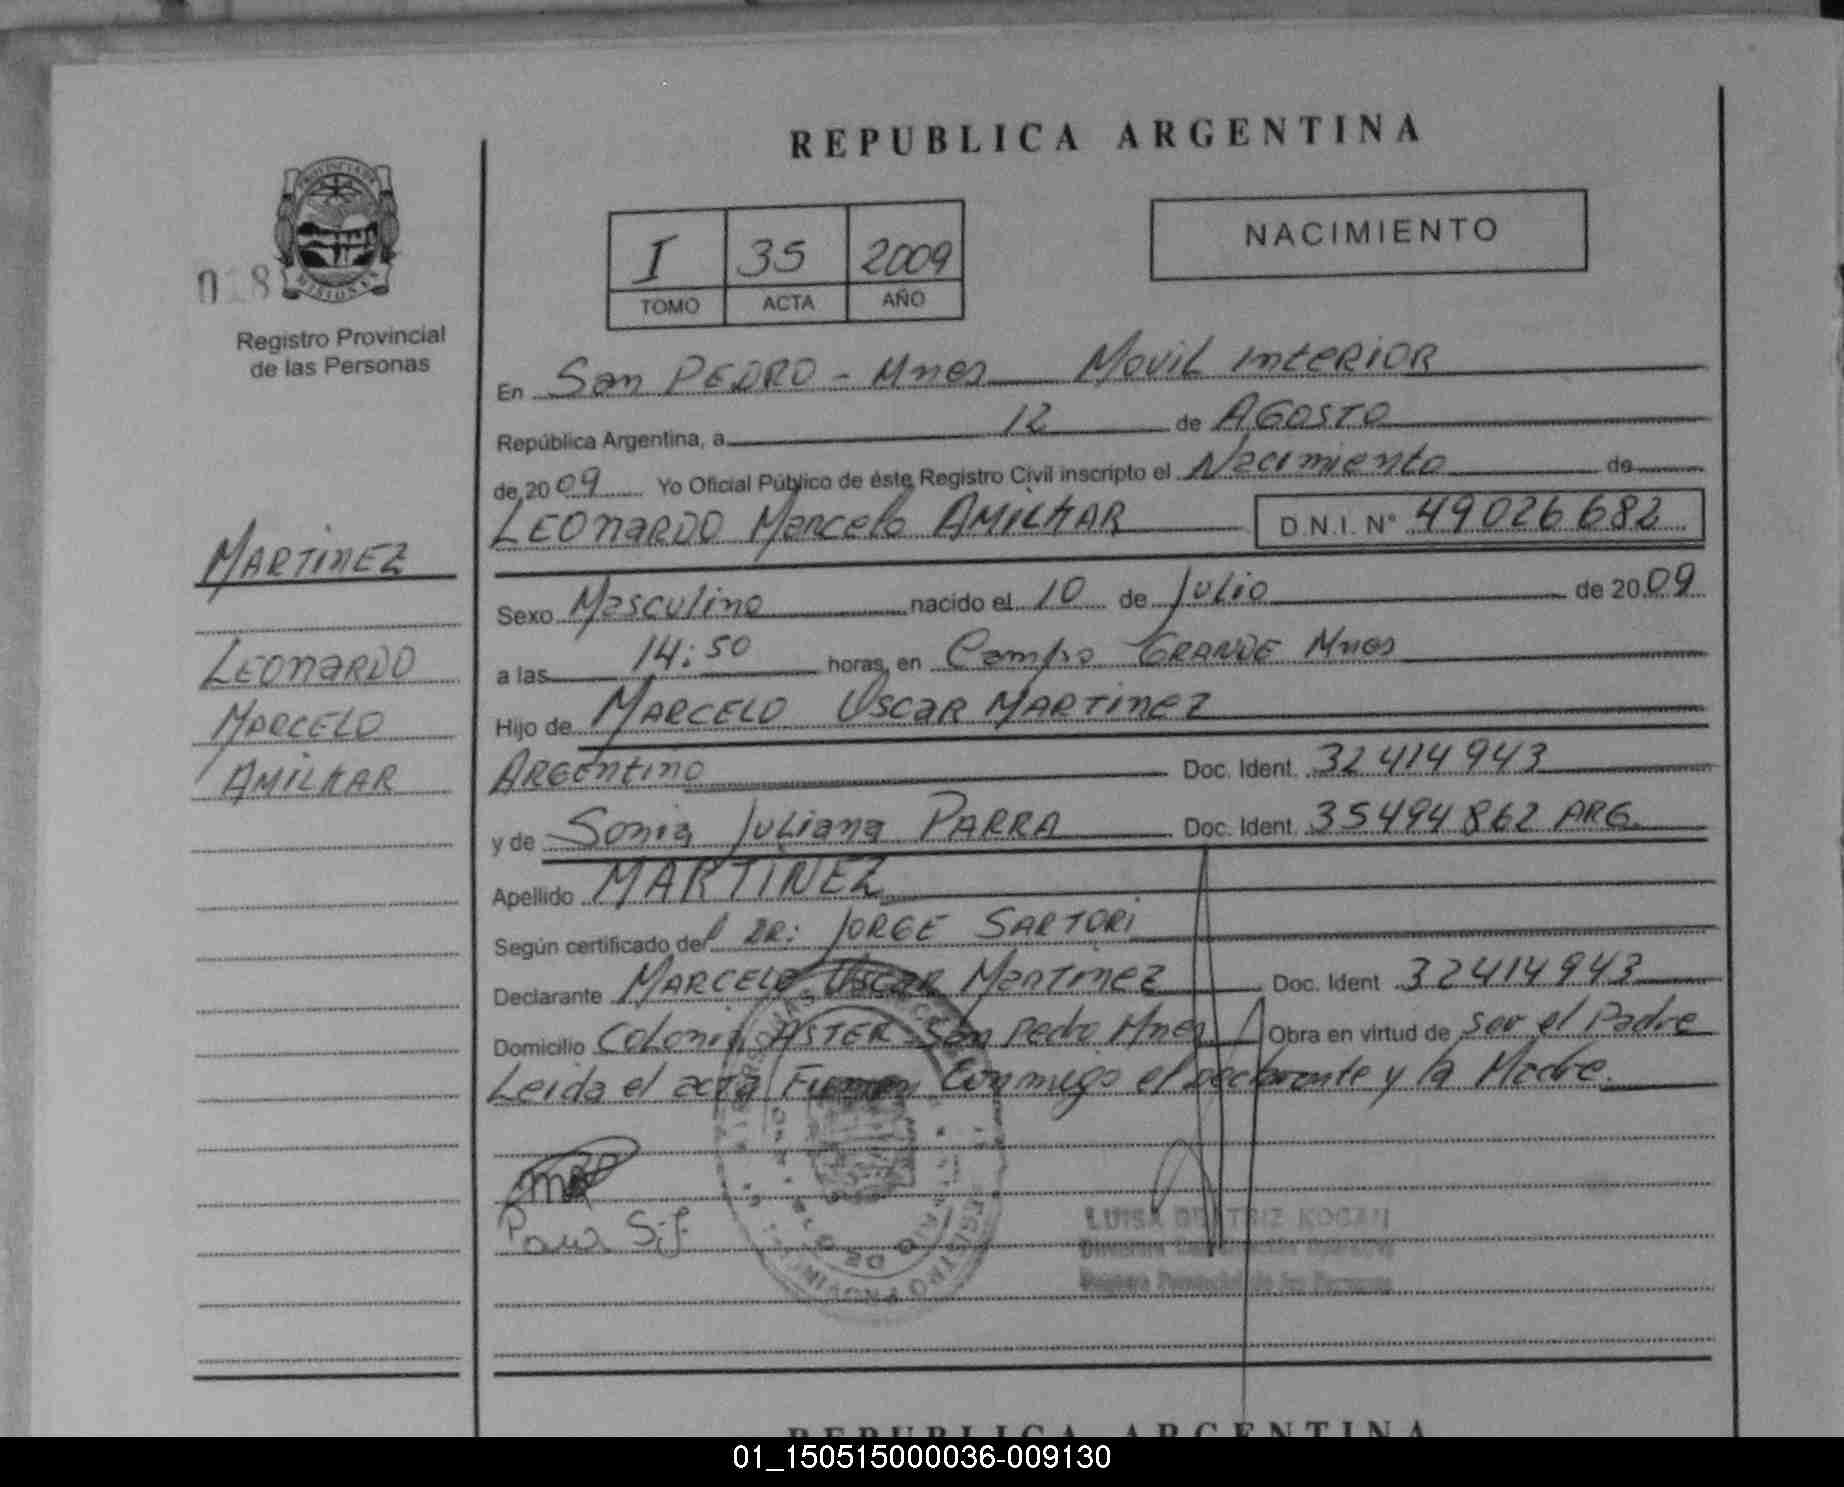 REPUBLICA ARGENTINA
PROVINCIA DE
MISIONES
018
Registro Provincial
de las Personas
I 35 2009
TOMO ACTA AÑO
NACIMIENTO
En San PEDRO - Mnes Movil InteRIOR
República Argentina, a 12 de AGOSTO
de 2009 Yo Oficial Público de éste Registro Civil inscripto el Nacimiento de
LEOnaRDO Marcelo AMILKAR D.N.I. N° 49026682
MARTINEZ
LEOnaRDO
MARCELO
AMILKAR
Sexo Masculino nacido el 10 de Julio de 2009
a las 14:50 horas, en Campo GRANDE Mnes
Hijo de MARCELO OscaR MARTINEZ
ARGEntino Doc. Ident. 32414943
y de Sonia Juliana PARRA Doc. Ident. 35494862 ARG.
Apellido MARTINEZ
Según certificado del DR: JORGE SARTORI
Declarante MARCELO OscaR MARTINEZ Doc. Ident 32414943
Domicilio Colonia ASTER San Pedro Mnes Obra en virtud de ser el Padre
Leida el acta Firman Conmigo el Declarante y la Madre.
LUISA BEATRIZ KOGAN
Registro Provincial de las Personas
REPUBLICA ARGENTINA
01_150515000036-009130